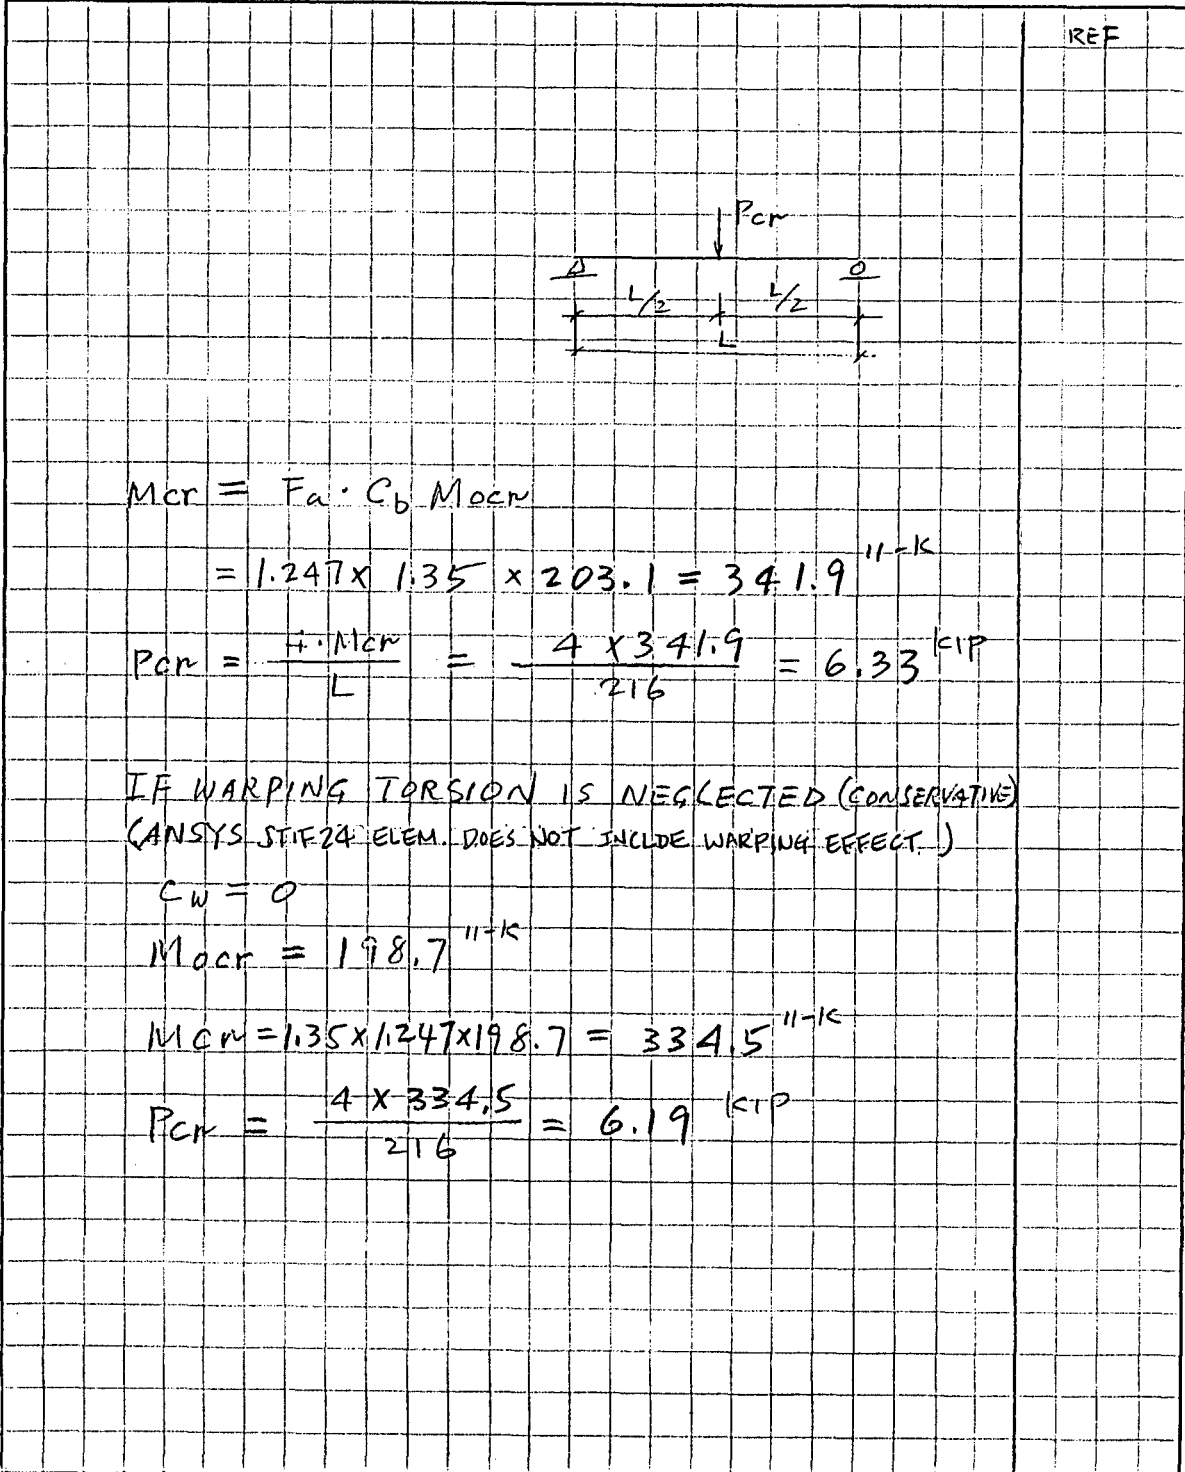 REF
Pcr
L/2 L/2
L
Mcr = Fa · Cb Mocr
= 1.247 x 1.35 x 203.1 = 341.9 "-K
Pcr = 4·Mcr / L = 4 x 341.9 / 216 = 6.33 KIP
IF WARPING TORSION IS NEGLECTED (CONSERVATIVE)
(ANSYS STIF24 ELEM. DOES NOT INCLDE WARPING EFFECT.)
Cw = 0
Mocr = 198.7 "-K
Mcr = 1.35 x 1.247 x 198.7 = 334.5 "-K
Pcr = 4 x 334.5 / 216 = 6.19 KIP